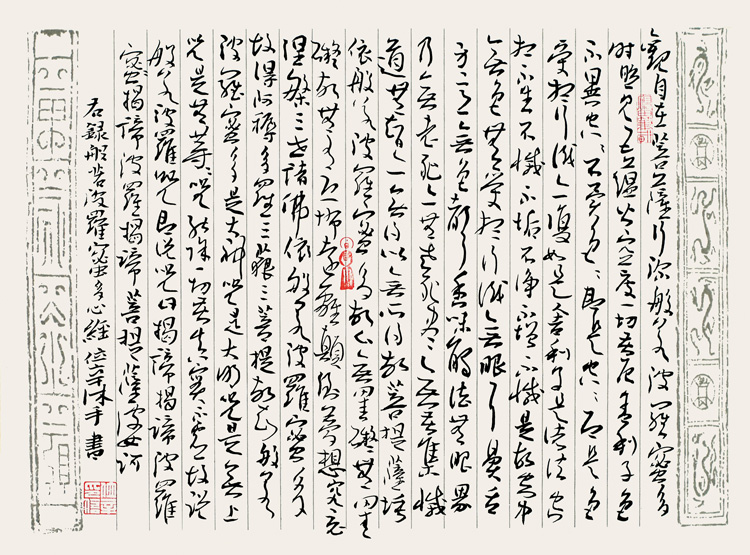 觀自在菩薩行深般若波羅蜜多
時照見五蘊皆空度一切苦厄舍利子色
不異空空不異色色即是空空即是色
受想行識亦復如是舍利子是諸法空
相不生不滅不垢不淨不增不減是故空中
無色無受想行識無眼耳鼻舌
身意無色聲香味觸法無眼界
乃無老死亦無老死盡無苦集滅
道無智亦無得以無所得故菩提薩埵
依般若波羅蜜多故心無罣礙無罣
礙故無有恐怖遠離顛倒夢想究竟
涅槃三世諸佛依般若波羅蜜多
故得阿耨多羅三藐三菩提故知般若
波羅蜜多是大神咒是大明咒是無上
咒是無等等咒能除一切苦真實不虛故說
般若波羅咒即說咒曰揭諦揭諦波羅
蜜揭諦波羅揭諦菩提薩波訶
右録般若波羅蜜多心經沐手書